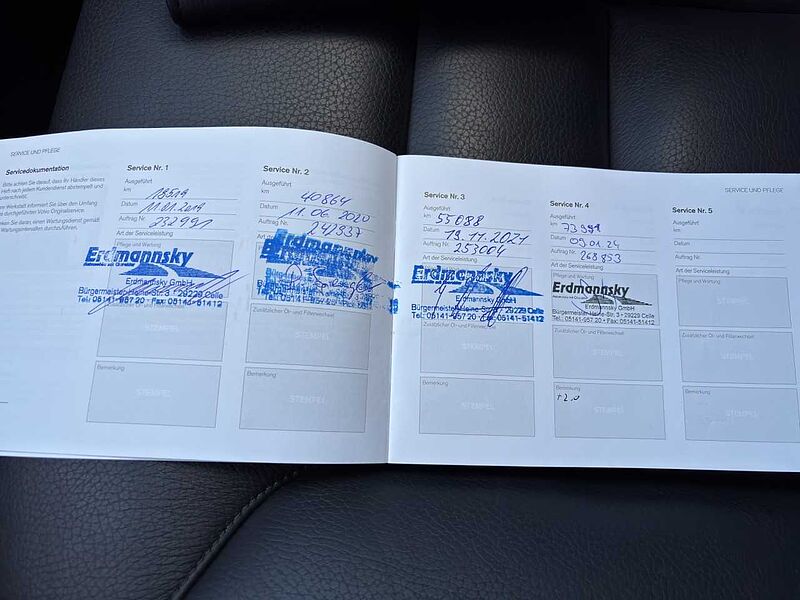 SERVICE UND PFLEGE
Servicedokumentation
Bitte achten Sie darauf, dass Ihr Händler dieses
Heft nach jedem Kundendienst abstempelt und
unterschreibt.
Service Nr. 1
Ausgeführt
km 18519
Datum 11.01.2019
Auftrag Nr. 232991
Art der Serviceleistung
Pflege und Wartung
Erdmannsky
Erdmannsky GmbH
Bürgermeister-Heine-Str. 3 • 29229 Celle
Tel.: 05141-957 20 • Fax: 05141-51412
STEMPEL
Bemerkung
STEMPEL
Service Nr. 2
Ausgeführt
km 40864
Datum 11.06.2020
Auftrag Nr. 242937
Art der Serviceleistung
Erdmannsky
Zusätzlicher Öl- und Filterwechsel
STEMPEL
Bemerkung
STEMPEL
Service Nr. 3
Ausgeführt
km 55088
Datum 19.11.2021
Auftrag Nr. 253004
Art der Serviceleistung
Erdmannsky
Erdmannsky GmbH
Bürgermeister-Heine-Str. 3 • 29229 Celle
Tel.: 05141-957 20 • Fax: 05141-51412
Zusätzlicher Öl- und Filterwechsel
STEMPEL
Bemerkung
STEMPEL
Service Nr. 4
Ausgeführt
km 73991
Datum 09.01.24
Auftrag Nr. 268953
Art der Serviceleistung
Pflege und Wartung
Erdmannsky
Erdmannsky GmbH
Bürgermeister-Heine-Str. 3 • 29229 Celle
Tel.: 05141-957 20 • Fax: 05141-51412
Zusätzlicher Öl- und Filterwechsel
STEMPEL
Bemerkung
STEMPEL
SERVICE UND PFLEGE
Service Nr. 5
Ausgeführt
km
Datum
Auftrag Nr.
Art der Serviceleistung
Pflege und Wartung
STEMPEL
Zusätzlicher Öl- und Filterwechsel
STEMPEL
Bemerkung
STEMPEL